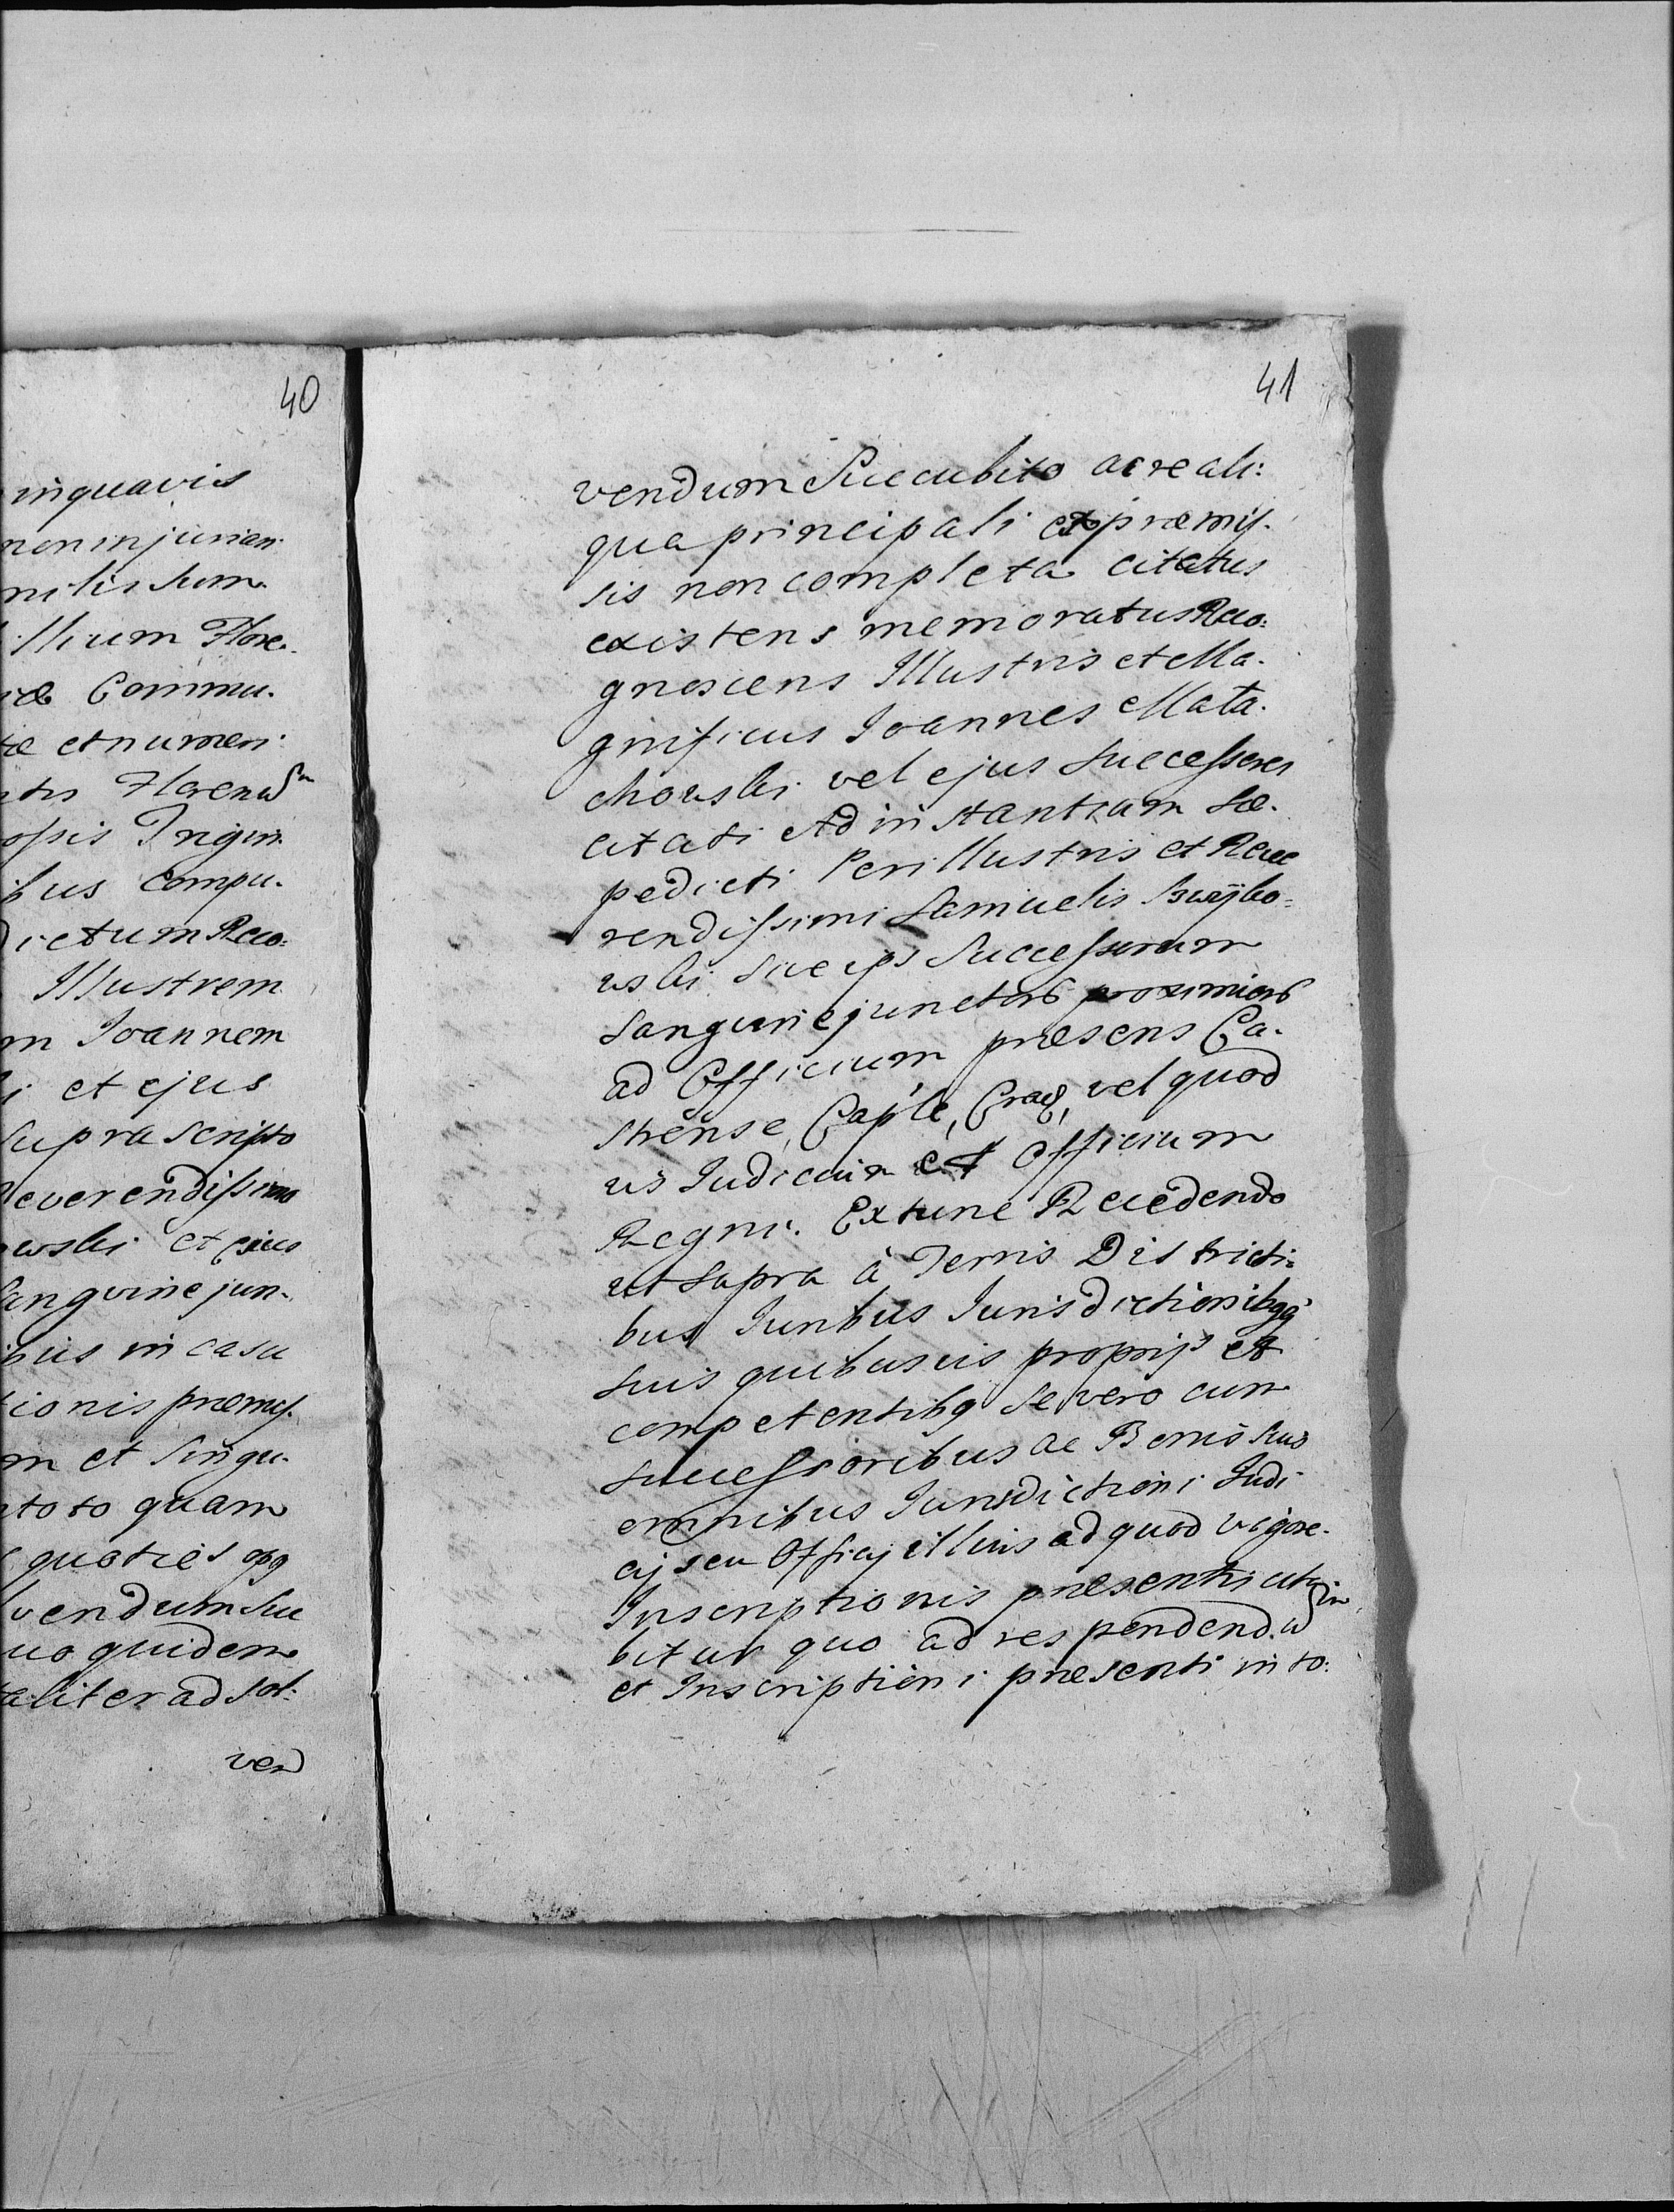 40
inquavis
non injuriam
milis Sum
Illium Flore.
Commu.
et numeri
Florenor
Trigin
bus compu.
dictum Reco:
Illustrem
m Joannem
i et ejus
supra scripto
Reverendissimo
ewski et ejus
Sanguine jun.
bus in casu
tionis præmis.
m et Singu.
toto quam
quoties opq
vendum Suc
quo quidem
taliter ad sol:
ven
41
vendum Succubito ac re ali:
qua principali ex præmis.
sis non completa citatus
existens memoratus Reco:
gnoscens Illustris et Ma.
gnificus Joannes Mała.
chowski vel ejus Successores
citati Ad instantiam Sæ.
pedicti Perillustris et Reve
rendissimi Samuelis
wski Successorum
Sanguine junctorb proximiorb
ad Officium præsens Ca.
strense, Cap'le, Crac, vel quod
vis Judicium et Officium
Regni. Extunc Recedendo
ut Supra à Terris Districti:
bus Juribus Jurisdictionibqq
suis quibusvis proprijs et
competentibq Se vero cum
Successoribus ac Bonis Suis
omnibus Jurisdictioni Judi
cij seu Officij illius ad quod vigore.
Inscriptionis præsentis
bitur quo ad respondend.
et Inscriptioni præsenti in to: